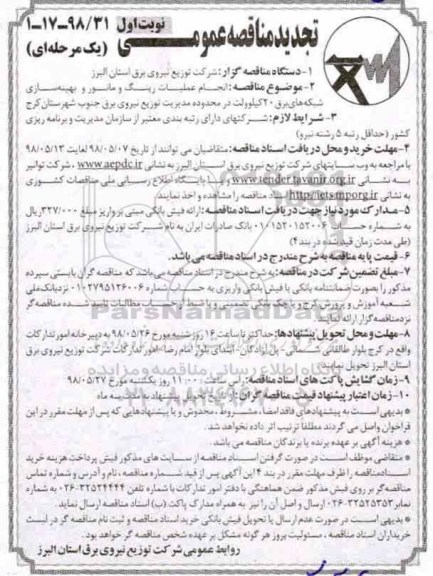 تجدید مناقصه عمومی نوبت اول ۹۸/۳۱-۱۷-۱
(یک مرحله ای)
۱- دستگاه مناقصه گزار: شرکت توزیع نیروی برق استان البرز
۲- موضوع مناقصه: انجام عملیات رینگ و مانور و بهینه‌سازی
شبکه‌های برق ۲۰کیلوولت در محدوده مدیریت توزیع نیروی برق جنوب شهرستان کرج
۳- شرایط لازم: شرکتهای دارای رتبه بندی معتبر از سازمان مدیریت و برنامه ریزی
کشور (حداقل رتبه ۵ رشته نیرو)
۴- مهلت خرید و محل دریافت اسناد مناقصه: متقاضیان می توانند از تاریخ ۹۸/۰۵/۰۷ لغایت ۹۸/۰۵/۱۳
با مراجعه به وب سایتهای شرکت توزیع نیروی برق استان البرز به نشانی www.aepdc.ir، شرکت توانیر
به نشانی www.tender.tavanir.org.ir و یا پایگاه اطلاع رسانی ملی مناقصات کشوری
به نشانی http://iets.mporg.ir اسناد مناقصه را مشاهده و اخذ نمایند
۵- مدارک مورد نیاز جهت دریافت اسناد مناقصه: ارائه فیش بانکی مبنی بر واریز مبلغ ۳۲۷/۰۰۰ ریال
به شماره حساب ۰۱۰۱۵۲۰۱۵۲۰۰۶ بانک صادرات ایران به نام شرکت توزیع نیروی برق استان البرز
(طی مدت زمان قید شده در بند ۴)
۶- قیمت پایه مناقصه به شرح مندرج در اسناد مناقصه می باشد.
۷- مبلغ تضمین شرکت در مناقصه: به شرح مندرج در اسناد مناقصه می‌باشد که مناقصه گران بایستی سپرده
مذکور را بصورت ضمانتنامه بانکی یا فیش بانکی واریزی به حساب شماره ۰۱۰۲۷۹۵۱۲۶۰۰۶ نزد بانک ملی
شعبه آموزش و پرورش کرج و یا چک بانکی تضمینی و یا ضبط از حساب مطالبات تایید شده مناقصه گر
نزد مناقصه گزار ارائه نمایند
۸- مهلت و محل تحویل پیشنهادها: حداکثر تا ساعت ۱۴ روز شنبه مورخ ۹۸/۰۵/۲۶ به دبیرخانه امور تدارکات
واقع در کرج بلوار طالقانی شمالی - پل آزادگان - ابتدای بلوار امام رضا - امور تدارکات شرکت توزیع نیروی برق
استان البرز تحویل نمایند
۹- زمان گشایش پاکت های اسناد مناقصه: راس ساعت ۱۱:۰۰ روز یکشنبه مورخ ۹۸/۰۵/۲۷
۱۰- زمان اعتبار پیشنهاد قیمت مناقصه گران: از تاریخ تحویل پیشنهاد به مدت سه ماه
* بدیهی است به پیشنهادهای فاقد امضا، مشروط، مخدوش و یا پیشنهادهایی که پس از مهلت مقرر در این
فراخوان واصل می گردند مطلقا ترتیب اثر داده نخواهد شد.
* هزینه آگهی بر عهده برنده یا برندگان مناقصه می باشد.
* متقاضی موظف است در صورت گرفتن اسناد مناقصه از سایت های مذکور فیش پرداخت هزینه خرید
اسناد مناقصه را ظرف مهلت مقرر در بند ۴ این آگهی پس از قید شماره مناقصه، نام و آدرس و شماره تماس
مناقصه گر بر روی فیش مذکور ضمن هماهنگی با دفتر امور تدارکات با شماره تلفن ۳۲۵۲۴۴۴۴-۰۲۶ به شماره
نمابر ۳۲۵۲۵۳۵۳-۰۲۶ ارسال و اصل آن را نیز به همراه مدارک پاکت (ب) اسناد مناقصه ارسال نماید.
* بدیهی است در صورت عدم ارسال یا تحویل فیش بانکی خرید اسناد مناقصه و ثبت نام مناقصه گر در لیست
خریداران اسناد مناقصه، مسئولیت بروز هر گونه مشکل بر عهده شخص مناقصه گر خواهد بود.
روابط عمومی شرکت توزیع نیروی برق استان البرز